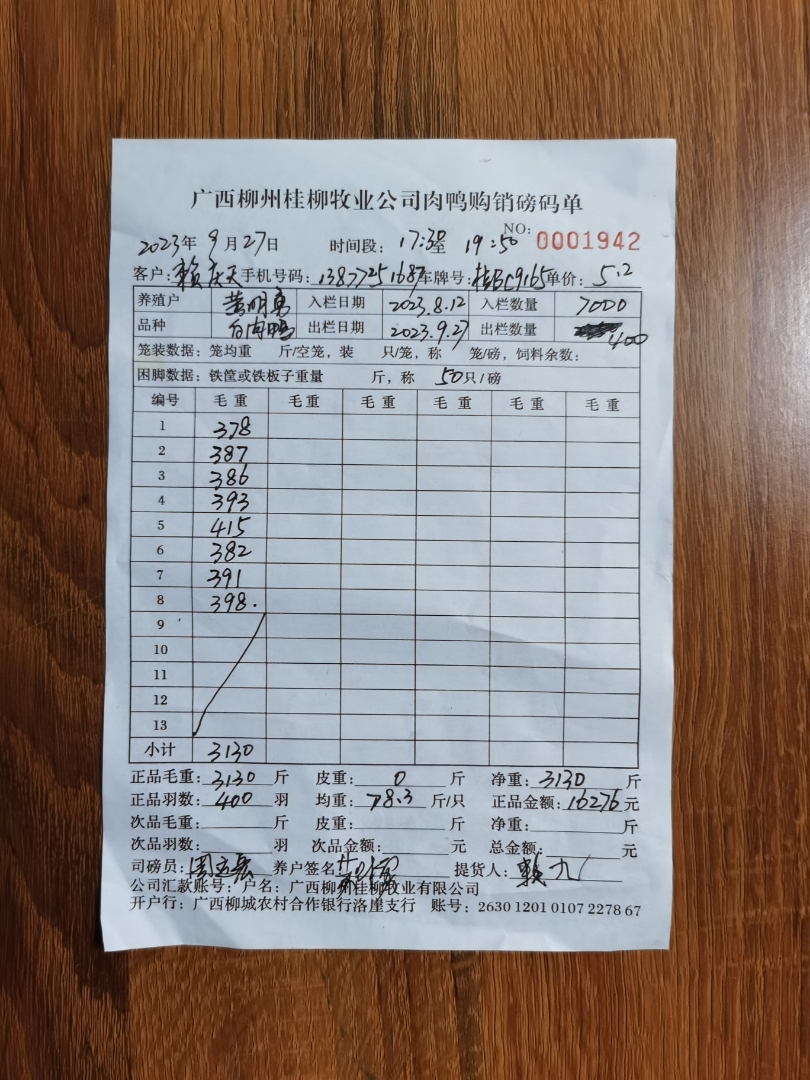 广西柳州桂柳牧业公司肉鸭购销磅码单
NO: 0001942
2023年9月27日 时间段: 17:30至19:50
客户: 赖庆天 手机号码: 13877251687 车牌号: 桂BC9165 单价: 5.2
养殖户 黄明勇 入栏日期 2023.8.12 入栏数量 7000
品种 白肉鸭 出栏日期 2023.9.27 出栏数量 400
笼装数据: 笼均重 斤/空笼, 装 只/笼, 称 笼/磅, 饲料余数:
困脚数据: 铁筐或铁板子重量 斤, 称 50只/磅
编号 毛重 毛重 毛重 毛重 毛重 毛重
1 378
2 387
3 386
4 393
5 415
6 382
7 391
8 398.
9
10
11
12
13
小计 3130
正品毛重: 3130 斤 皮重: 0 斤 净重: 3130 斤
正品羽数: 400 羽 均重: 78.3 斤/只 正品金额: 16276 元
次品毛重: 斤 皮重: 斤 净重: 斤
次品羽数: 羽 次品金额: 元 总金额: 元
司磅员: 养户签名 提货人: 赖九
公司汇款账号: 户名: 广西柳州桂柳牧业有限公司
开户行: 广西柳城农村合作银行洛崖支行 账号: 2630 1201 0107 2278 67